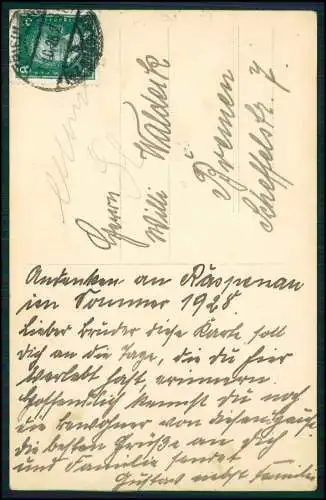 Herrn
Willi Walderk
Bremen
Scheffelstr. 7.
Andenken an Räspenau
im Sommer 1928.
Lieber Bruder diese Karte soll
dich an die Tage, die du hier
verlebt hast erinnern.
Hoffentlich kennst du noch
die bewohner von diesen Hause
die besten Grüße an dich
und Familie sendet
Gustav nebst Familie